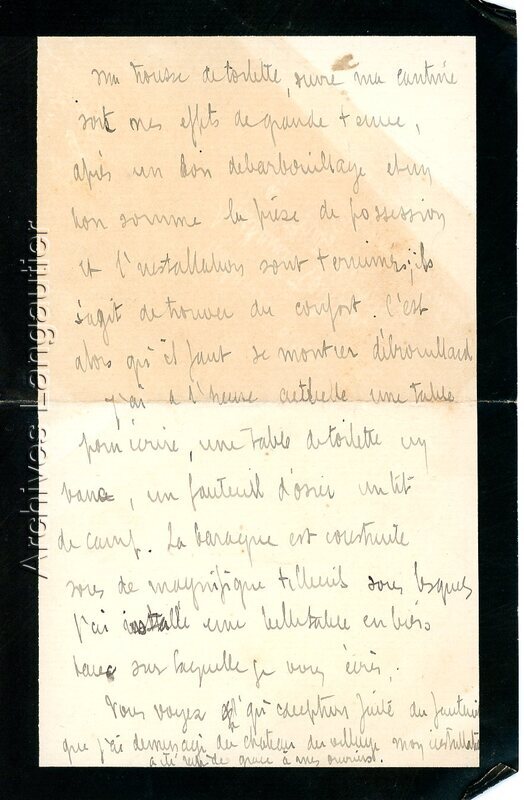 ma trousse de toilette, ouvre ma cantine
sort mes effets de grande tenue,
après un bon debarbouillage et un
bon somme la prise de possession
et l'installation sont terminées; ils
s'agit de trouver du confort. C'est
alors qu'il faut se montrer débrouillard
j'ai a l'heure actuelle une table
pour écrire, une table de toilette un
banc, un fauteuil d'osier un lit
de camp. La baraque est construite
sous de magnifique tilleuils sous lesquels
j'ai installé une belle table en bois
sur laquelle je vous écris,
Vous voyez qu'exception faite du fauteuil
que j'ai demenagé du chateau du village mon installation
a été rapide grace à mes ouvriers.
Archives Langautier